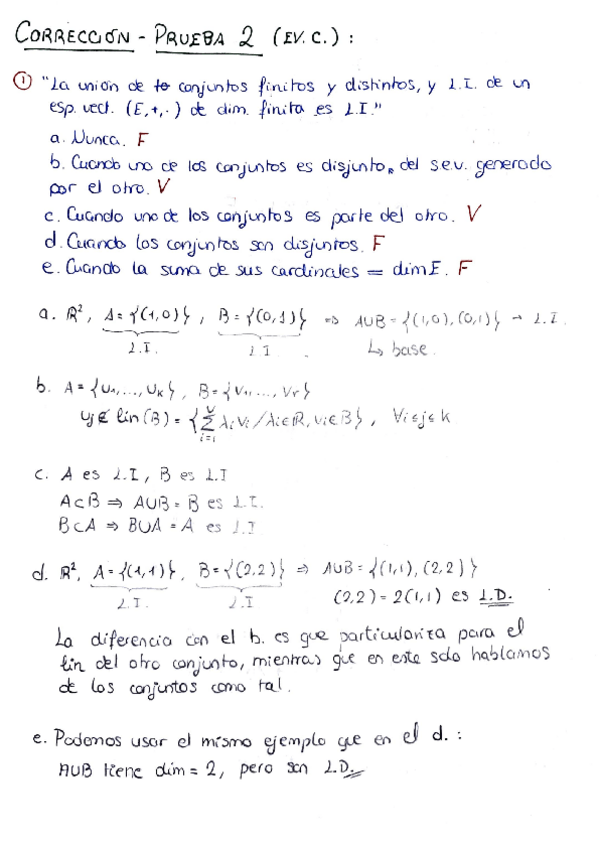 CORRECCIÓN - PRUEBA 2 (EV. C.) :
① "La unión de conjuntos finitos y distintos, y L.I. de un
esp. vect. (E,+,·) de dim. finita es L.I."
a. Nunca. F
b. Cuando uno de los conjuntos es disjunto del s.e.v. generado
por el otro. V
c. Cuando uno de los conjuntos es parte del otro. V
d. Cuando los conjuntos son disjuntos. F
e. Cuando la suma de sus cardinales = dim E. F
a. ℝ², A = {(1,0)}, B = {(0,1)} ⇒ A∪B = {(1,0), (0,1)} → L.I.
L.I. L.I. ↳ base.
b. A = {u₁, ..., uₖ}, B = {v₁, ..., vᵣ}
uⱼ ∉ lin(B) = {Σᵢ₌₁ʳ λᵢvᵢ / λᵢ∈ℝ, vᵢ∈B}, ∀ 1≤j≤k
c. A es L.I, B es L.I
A⊂B ⇒ A∪B = B es L.I.
B⊂A ⇒ B∪A = A es L.I
d. ℝ², A = {(1,1)}, B = {(2,2)} ⇒ A∪B = {(1,1), (2,2)}
L.I. L.I (2,2) = 2(1,1) es L.D.
La diferencia con el b. es que particulariza para el
lin del otro conjunto, mientras que en este solo hablamos
de los conjuntos como tal.
e. Podemos usar el mismo ejemplo que en el d. :
A∪B tiene dim = 2, pero son L.D.